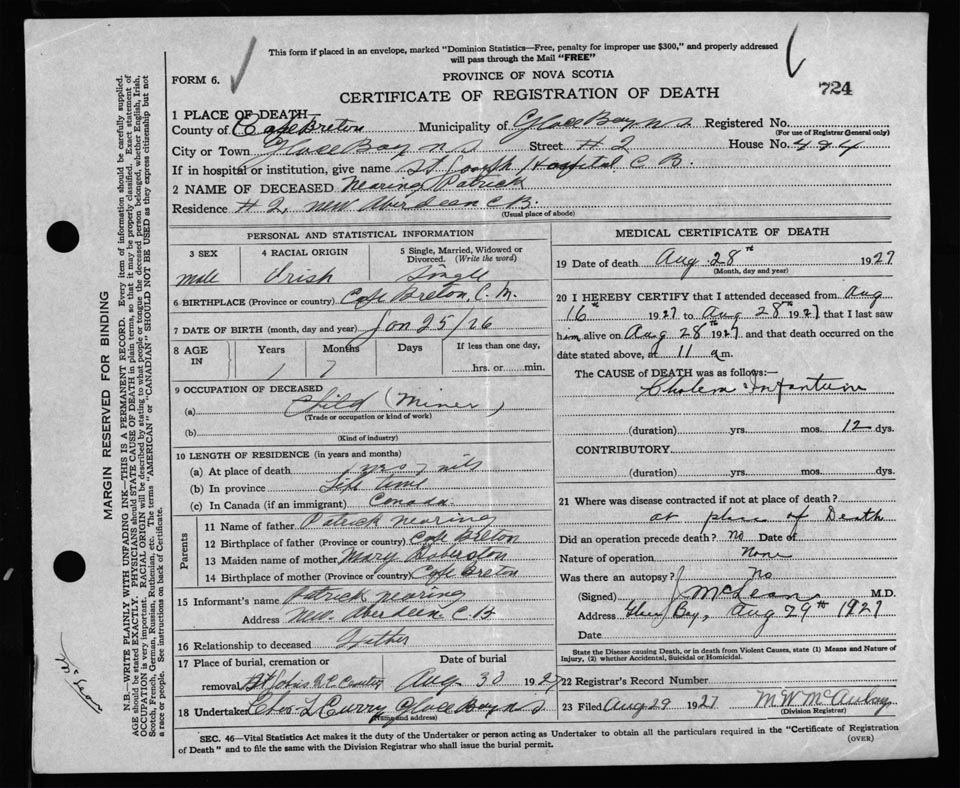 This form if placed in an envelope, marked "Dominion Statistics—Free, penalty for improper use $300," and properly addressed
will pass through the Mail "FREE"
FORM 6.
PROVINCE OF NOVA SCOTIA
724
CERTIFICATE OF REGISTRATION OF DEATH
1 PLACE OF DEATH—
County of Cape Breton Municipality of Glace Bay N S Registered No.
(For use of Registrar General only)
City or Town Glace Bay N S Street # 2 House No. 424
If in hospital or institution, give name St Joseph Hospital C B.
2 NAME OF DECEASED Nearing Patrick
Residence # 2 New Aberdeen C B.
(Usual place of abode)
PERSONAL AND STATISTICAL INFORMATION
3 SEX 4 RACIAL ORIGIN 5 Single, Married, Widowed or Divorced. (Write the word)
male Irish Single
6 BIRTHPLACE (Province or country) Cape Breton,
7 DATE OF BIRTH (month, day and year) Jan 25/26
8 AGE IN Years Months Days If less than one day,
1 7 hrs. or min.
9 OCCUPATION OF DECEASED
(a) Child (Miner)
(Trade or occupation or kind of work)
(b)
(Kind of industry)
10 LENGTH OF RESIDENCE (in years and months)
(a) At place of death 1 yrs 7
(b) In province Life time
(c) In Canada (if an immigrant) Canada
Parents
11 Name of father Patrick Nearing
12 Birthplace of father (Province or country) Cape Breton
13 Maiden name of mother Mary
14 Birthplace of mother (Province or country) Cape Breton
15 Informant's name Patrick Nearing
Address New Aberdeen C B
16 Relationship to deceased Father
17 Place of burial, cremation or removal St Johns R.C. Date of burial Aug 30 1927
18 Undertaker Chas L Curry Glace Bay N S
(Name and address)
MEDICAL CERTIFICATE OF DEATH
19 Date of death Aug 28th 1927
(Month, day and year)
20 I HEREBY CERTIFY that I attended deceased from Aug
16th 1927 to Aug 28th 1927 that I last saw
him alive on Aug 28th 1927 and that death occurred on the
date stated above, at 11 a m.
The CAUSE of DEATH was as follows:—
Cholera
(duration) yrs. mos. 12 dys.
CONTRIBUTORY
(duration) yrs. mos. dys.
21 Where was disease contracted if not at place of death?
at place of Death
Did an operation precede death? No Date of
Nature of operation None
Was there an autopsy? No
(Signed) J McLean M.D.
Address Glace Bay, Aug 29th 1927
Date
State the Disease causing Death, or in death from Violent Causes, state (1) Means and Nature of
Injury, (2) whether Accidental, Suicidal or Homicidal.
22 Registrar's Record Number
23 Filed Aug 29 1927
(Division Registrar)
SEC. 46—Vital Statistics Act makes it the duty of the Undertaker or person acting as Undertaker to obtain all the particulars required in the "Certificate of Registration
of Death" and to file the same with the Division Registrar who shall issue the burial permit.
(OVER)
MARGIN RESERVED FOR BINDING
N.B.—WRITE PLAINLY WITH UNFADING INK—THIS IS A PERMANENT RECORD. Every item of information should be carefully supplied.
AGE should be stated EXACTLY. PHYSICIANS should STATE CAUSE OF DEATH in plain terms, so that it may be properly classified. Exact statement of
OCCUPATION is very important. RACIAL ORIGIN will be described by stating to what people or tongue the deceased person belonged, whether English, Irish,
Scotch, French, German, Russian, Ruthenian, etc. The terms "AMERICAN" or "CANADIAN" SHOULD NOT BE USED as they express citizenship but not
a race or people. See instructions on back of Certificate.